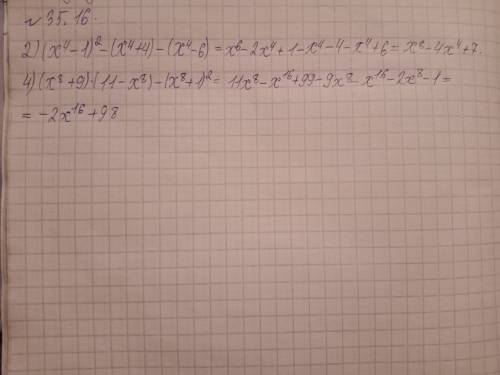 № 35.16.
2) (x⁴-1)²-(x⁴+4)-(x⁴-6) = x⁸-2x⁴+1-x⁴-4-x⁴+6 = x⁸-4x⁴+7.
4) (x⁸+9)·(11-x⁸)-(x⁸+1)² = 11x⁸-x¹⁶+99-9x⁸-x¹⁶-2x⁸-1=
= -2x¹⁶+98